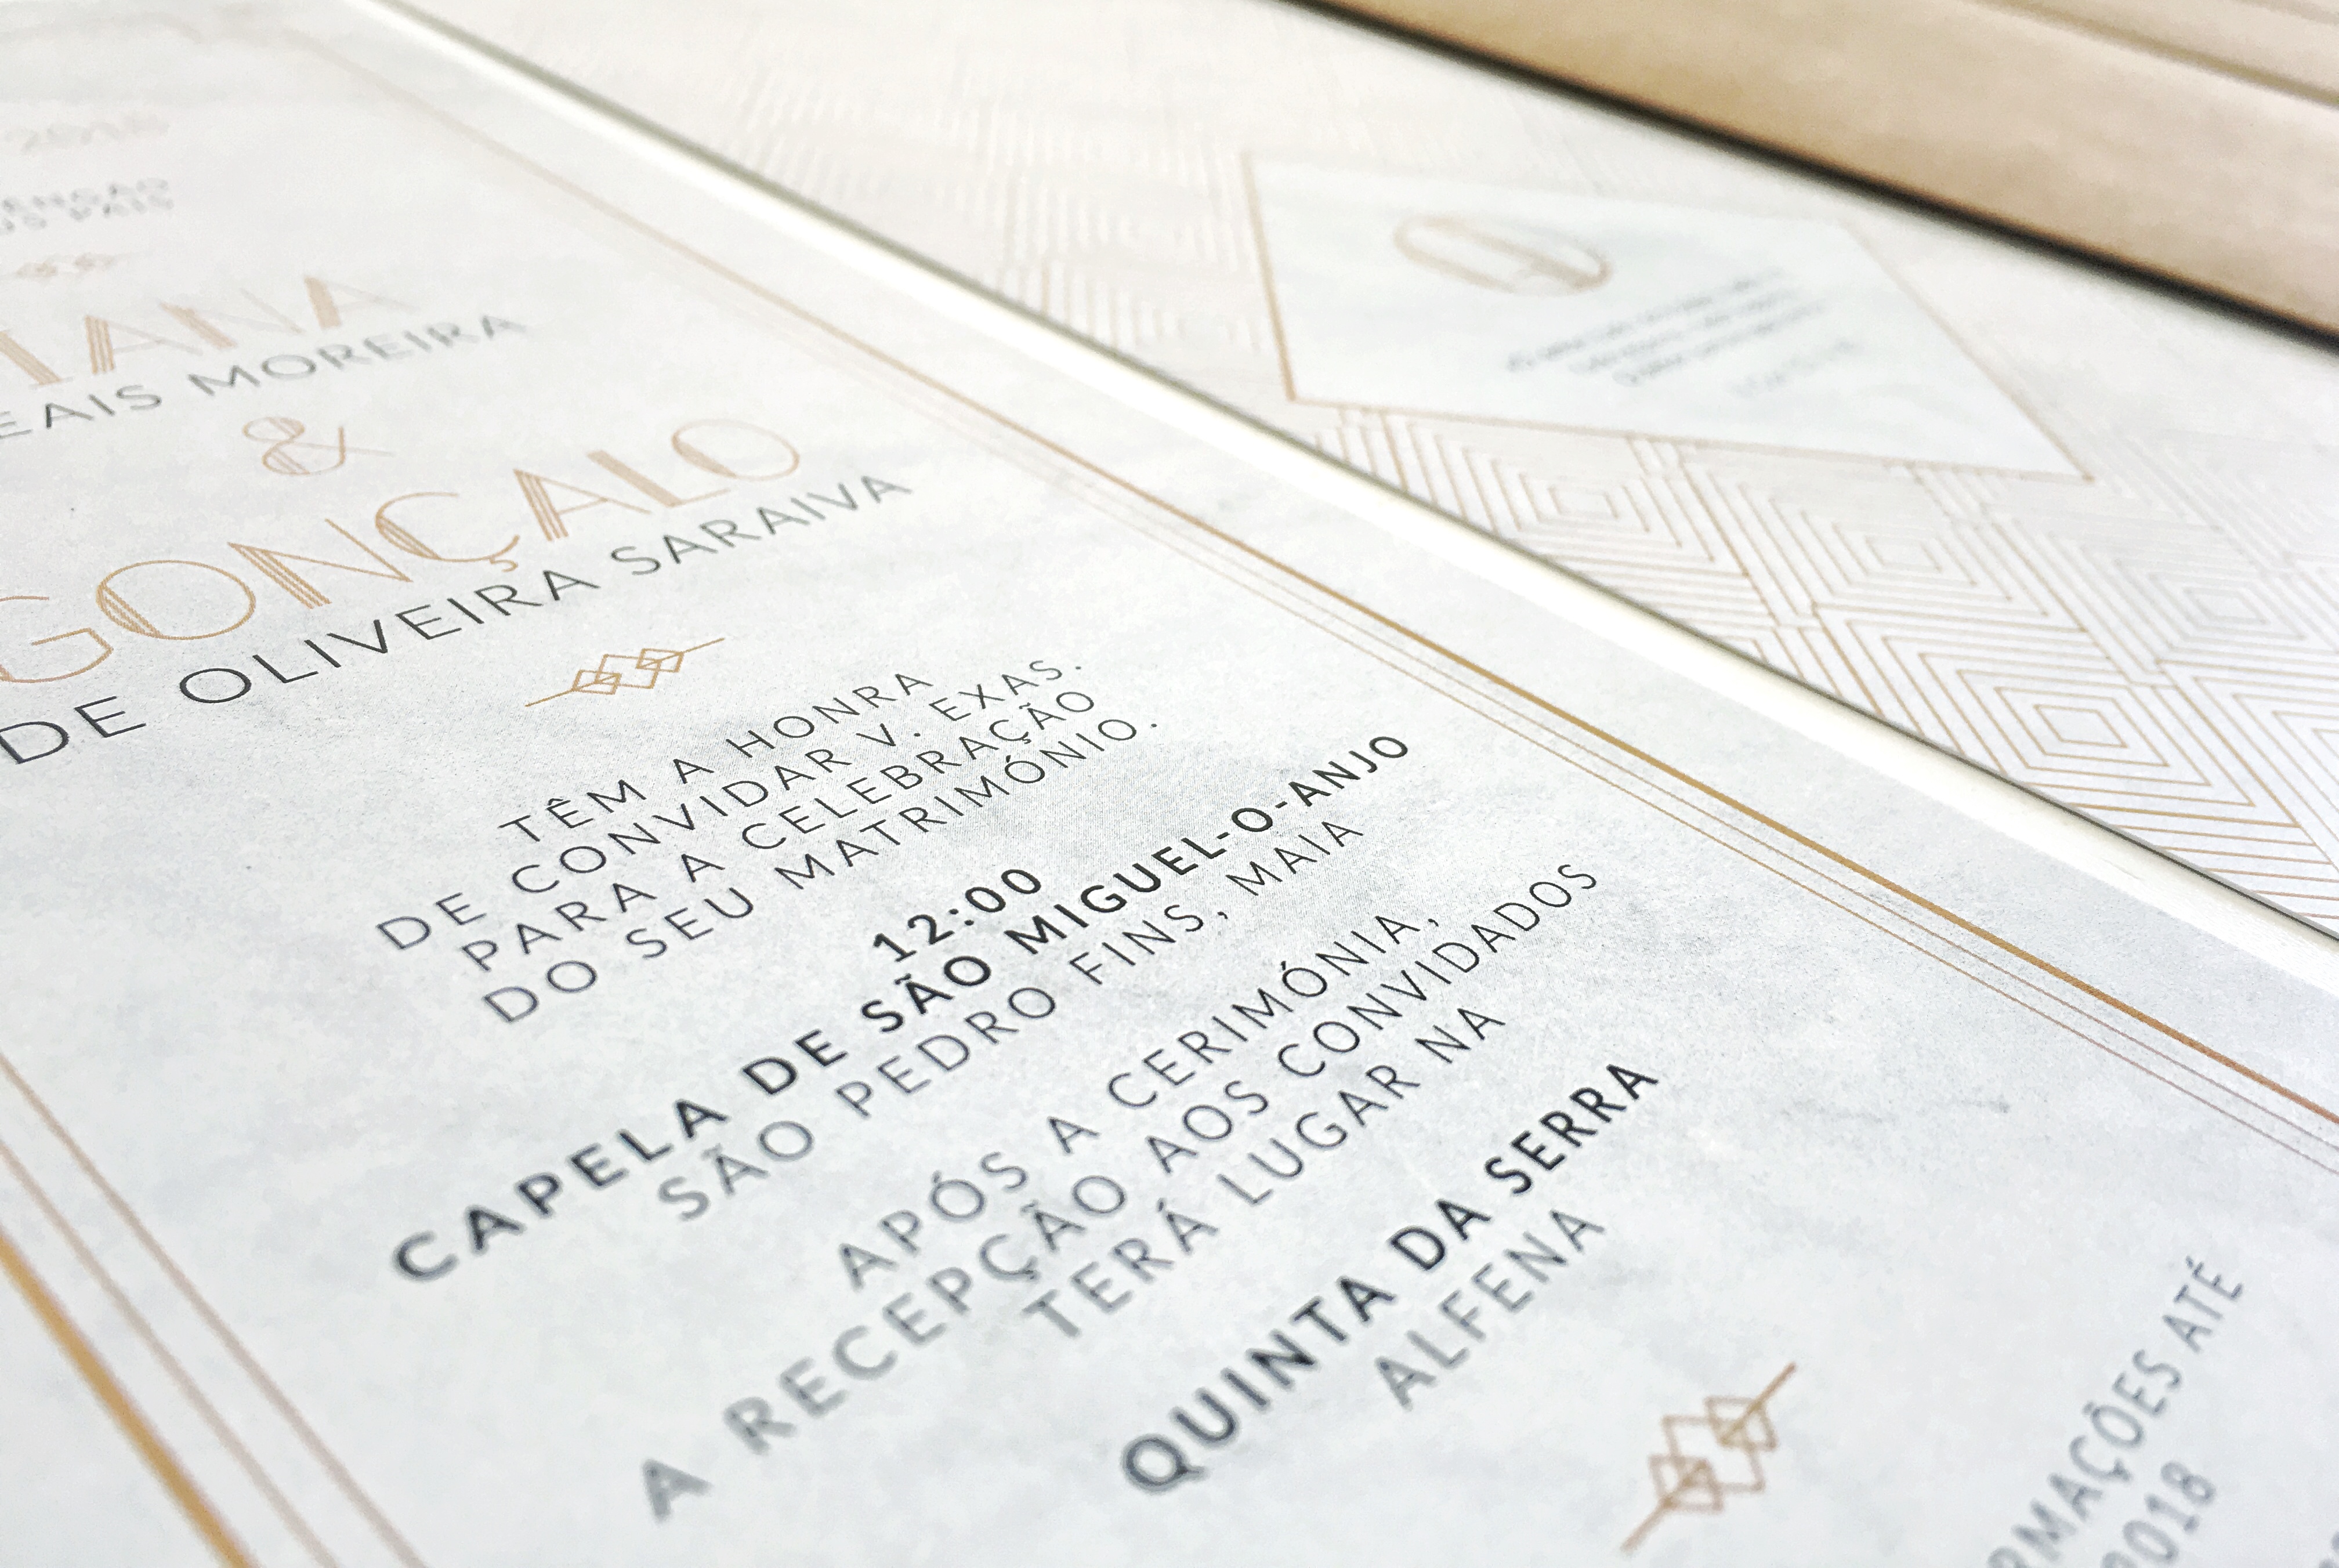 2018
IANA
EAIS MOREIRA
&
GONÇALO
DE OLIVEIRA SARAIVA
TÊM A HONRA
DE CONVIDAR V. EXAS.
PARA A CELEBRAÇÃO
DO SEU MATRIMÓNIO.
12:00
CAPELA DE SÃO MIGUEL-O-ANJO
SÃO PEDRO FINS, MAIA
APÓS A CERIMÓNIA,
A RECEPÇÃO AOS CONVIDADOS
TERÁ LUGAR NA
QUINTA DA SERRA
ALFENA
RMAÇÕES ATÉ
2018